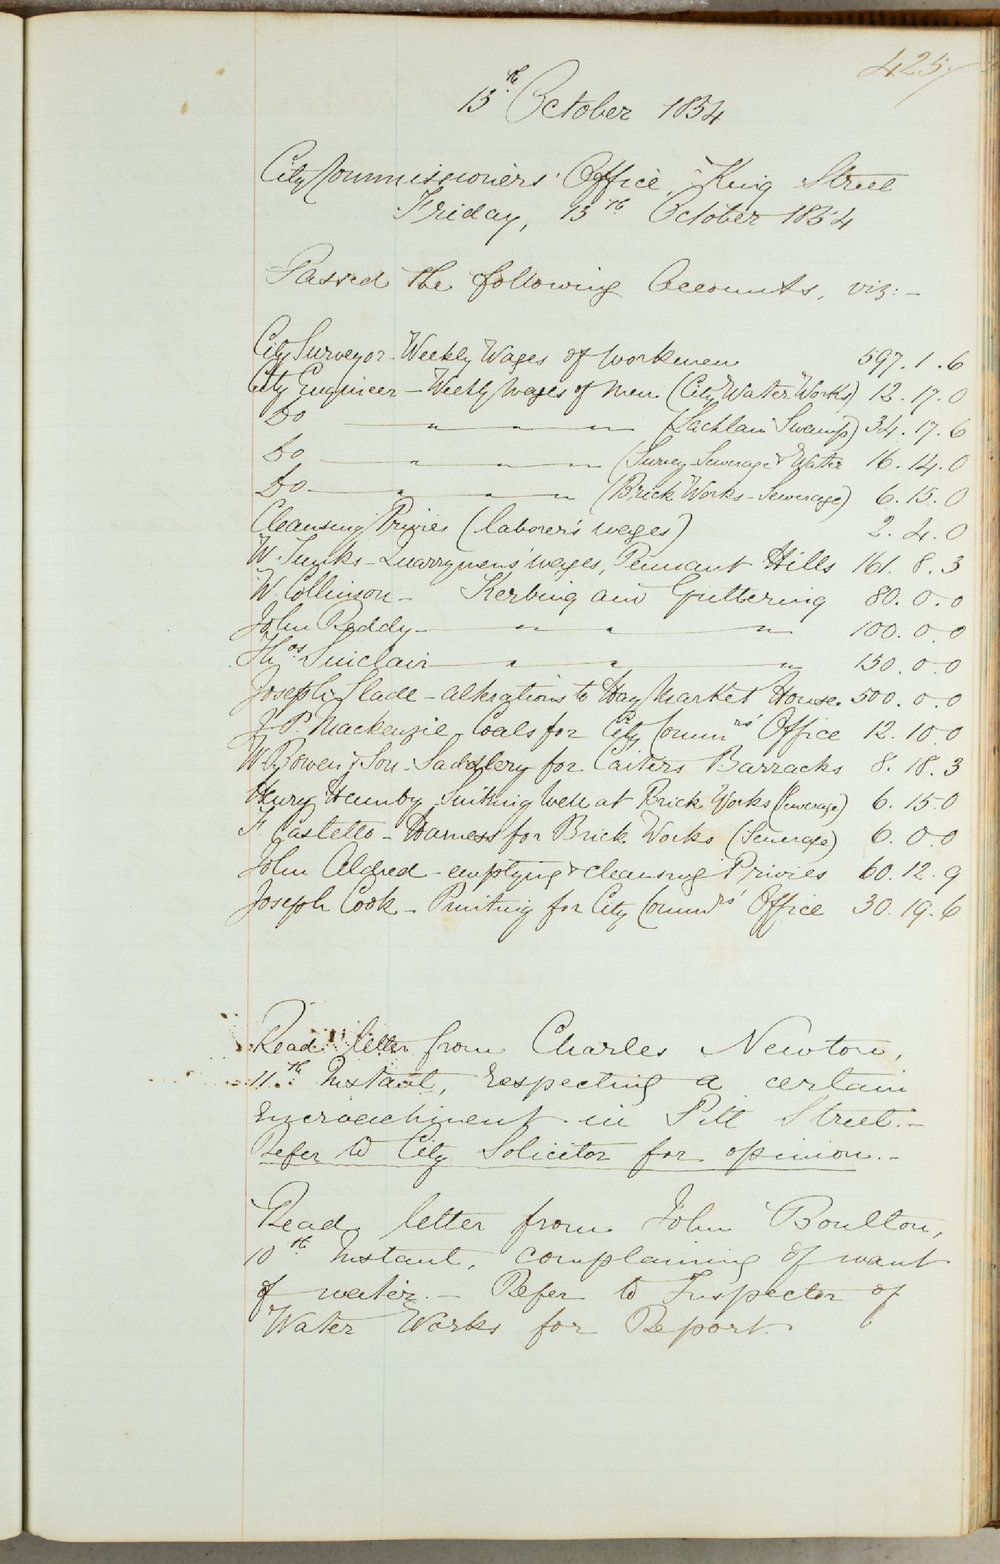 425
13th October 1854
City Commissioners' Office, King Street
Friday, 13th October 1854
Passed the following Accounts, viz:-
City Surveyor - Weekly Wages of workmen 597.1.6
City Engineer - Weekly wages of men (City Water Works) 12.17.0
Do " " " (Lachlan Swamp) 34.17.6
Do " " " (Survey Sewerage & Water 16.14.0
Do " " " (Brick Works - Sewerage) 6.15.0
Cleansing Privies (laborer's wages) 2.4.0
W. - Quarrymens' wages, Pennant Hills 161.8.3
W. Collinson - Kerbing and Guttering 80.0.0
John Reddy - " " " 100.0.0
Thos Sinclair " " " 150.0.0
Joseph Slade - alterations to Hay Market House. 500.0.0
J. P. Mackenzie Coals for City Commrs' Office 12.10.0
W. Bowen & Son - Saddlery for Carters Barracks 8.18.3
Henry Sinking Well at Brick Works (Sewerage) 6.15.0
F. Castello - Harness for Brick Works (Sewerage) 6.0.0
John Aldred - emptying & cleansing Privies 60.12.9
Joseph Cook - Printing for City Commrs' Office 30.19.6
Read letter from Charles Newton,
11th Instant, respecting a certain
encroachment in Pitt Street.-
Refer to City Solicitor for opinion.-
Read letter from John Boulton,
10th Instant, complaining of want
of water.- Refer to Inspector of
Water Works for Report.